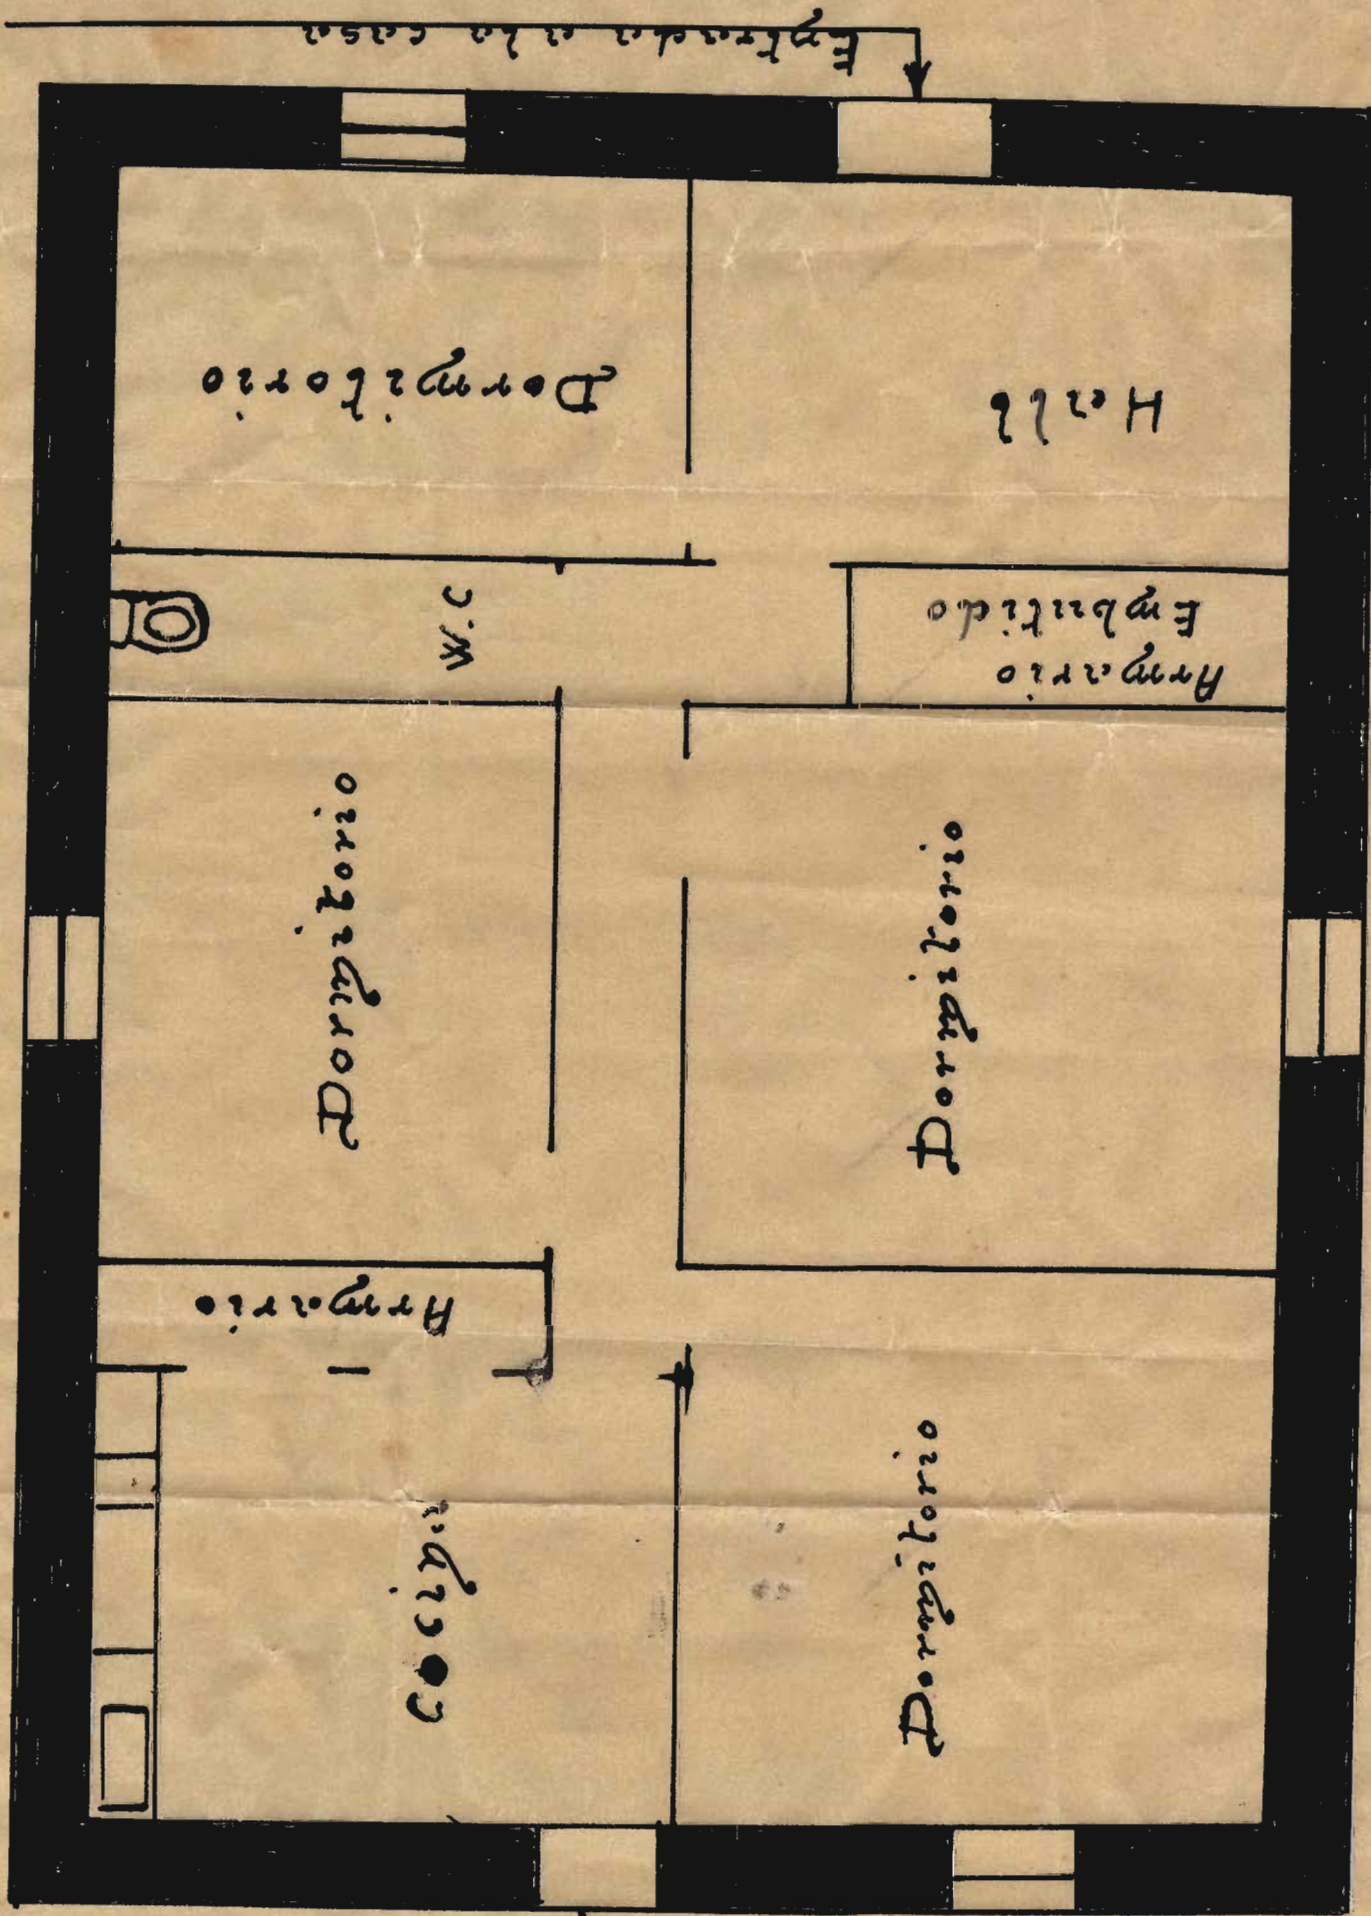 Entrada a la casa
Dormitorio
Hall
W.C
Armario
Embutido
Dormitorio
Dormitorio
Armario
Cocina
Dormitorio